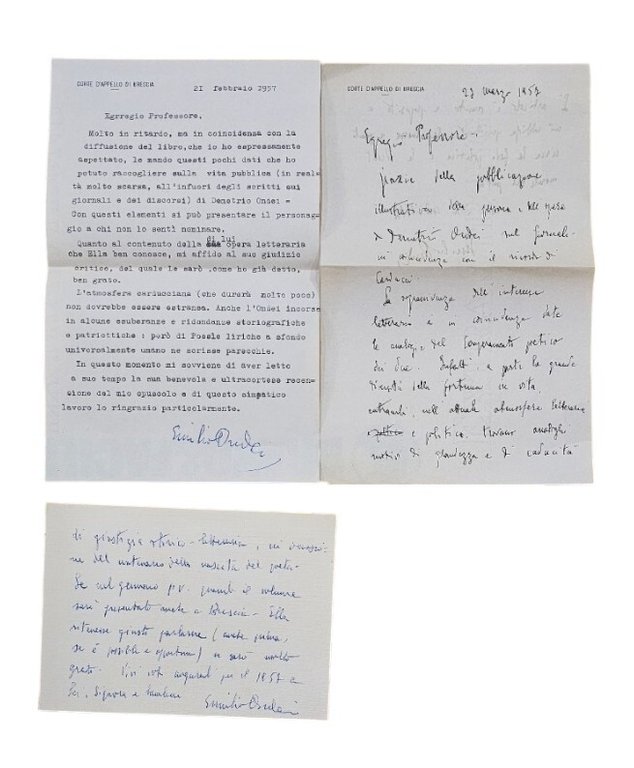 CORTE D'APPELLO DI BRESCIA
21 febbraio 1957
Egrregio Professore.
Molto in ritardo, ma in coincidenza con la
diffusione del libro, che io ho espressamente
aspettato, le mando questi pochi dati che ho
potuto raccogliere sulla vita pubblica (in real=
tà molto scarsa, all'infuori degli scritti sui
giornali e dei discorsi) di Demetrio Ondei =
Con questi elementi si può presentare il personag=
gio a chi non lo sentì nominare.
di lui
Quanto al contenuto della opera letteraria
che Ella ben conosce, mi affido al suo giudizio
critico, del quale Le sarò, come ho già detto,
ben grato.
L'atmosfera carducciana (che durerà molto poco)
non dovrebbe essere estranea. Anche l'Ondei incorse
in alcune esuberanze e ridondanze storiografiche
e patriottiche : però di Poesie liriche a sfondo
universalmente umano ne scrisse parecchie.
In questo momento mi sovviene di aver letto
a suo tempo la sua benevola e ultracortese recen=
sione del mio opuscolo e di questo simpatico
lavoro lo ringrazio particolarmente.
Emilio Ondei
CORTE D'APPELLO DI BRESCIA
27 marzo 1957
Egregio Professore.
Grazie della pubblicazione
illustrativa della persona e delle opere
di Demetrio Ondei sul Giornale -
in coincidenza con il ricordo di
Carducci.
La sopravvivenza dell'interesse
letterario è in coincidenza
le analogie del temperamento poetico
dei due. Infatti, a parte la grande
diversità della fortuna in vita,
entrambi, nell'attuale atmosfera letteraria
e politica, trovano analoghi
motivi di grandezza e di caducità
di giustizia storico-letteraria, in occasio=
ne del centenario della nascita del poeta.
Se nel gennaio p.v. quando il volume
sarà presentato anche a Brescia - Ella
ritenesse giusto parlarne (anche prima,
se è possibile e opportuno) ne sarò molto
grato. Vivi voti augurali per il 1957 a
Lei, Signora e bambini
Emilio Ondei